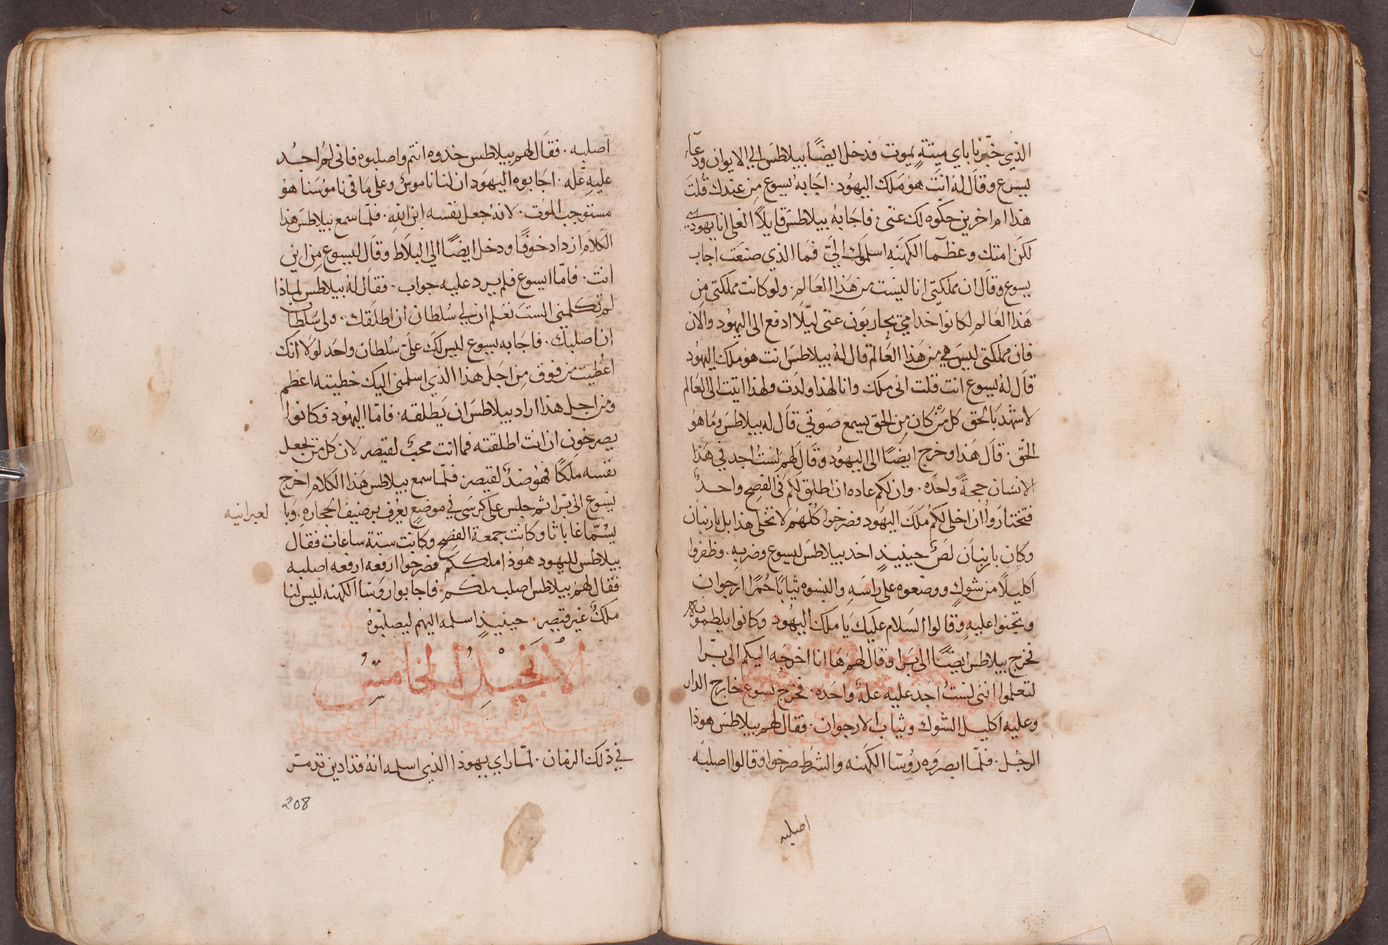 الذي خبرنا باي ميتةٍ يموت فدخل ايضًا بيلاطس الي الايوان ودعا
يسوع وقال له انت هو ملك اليهود . اجابه يسوع من عندك قلت
هذا ام اخرين حكوه لك عني . فاجابه بيلاطس قايلاً العلي انا يهودي
لكن امتك وعظما الكهنه اسلموك اليّ فما الذي صنعت اجاب
يسوع وقال ان مملكتي انا ليست من هذا العالم . ولو كانت مملكتي من
هذا العالم لكانوا خدامي يحاربون عني ليلا ادفع الي اليهود والان
فان مملكتي ليس هي من هذا العالم قال له بيلاطس انت هو ملك اليهود
قال له يسوع انت قلت اني ملك وانا لهذا ولدت ولهذا اتيت الي العالم
لاشهد بالحق كل من كان من الحق يسمع صوتي قال له بيلاطس وما هو
الحق . قال هذا وخرج ايضًا الي اليهود وقال لهم لست اجد في هذا
الانسان حجةً واحده . وان لكم عاده ان اطلق لكم في الفصح واحدٌ
فتختاروا ان اخلي لكم ملك اليهود فصرخوا كلهم لا تخلي هذا بل باربنان
وكان باربنان لصٌ حينيذٍ اخد بيلاطس ليسوع وضربه . وظفروا
اكليلاً من شوكٍ ووضعوه علي راسه والبسوه ثيابًا حُمرًا ارجوان
وتجثوا عليه وقالوا السلام عليك يا ملك اليهود وكانوا يلطموه
فخرج بيلاطس ايضًا الي بَرا وقال لهم ها انا اخرجه اليكم الي برا
لتعلموا انني لست اجد عليه علةٌ واحده . فخرج يسوع خارج الدار
وعليه اكليل الشوك وثياب الارجوان . فقال لهم بيلاطس هوذا
الرجل . فلما ابصروه روسا الكهنه والشرط صرخوا وقالوا اصلبه
اصلبه
اصلبه . فقال لهم بيلاطس خدوه انتم واصلبوه فاني لم اجدُ
عليه عله . اجابوه اليهود ان لنا ناموسٌ وعلي ما في ناموسنا هو
مستوجب الموت . لانه جعل نفسه ابن الله . فلما سمع بيلاطس هذا
الكلام ازداد خوفًا ودخل ايضًا الي البلاط وقال ليسوع من اين
انت . فاما يسوع فلم يرد عليه جواب . فقال له بيلاطس لماذا
لم تكلمني الست تعلم ان لي سُلطان ان اطلقك . ولي سلطان
ان اصلبك . فاجابه يسوع ليس لك عليّ سُلطان واحد لولا انك
اعطيت من فوق من اجل هذا الذي اسلمني اليك خطيته اعظم
ومن اجل هذا اراد بيلاطس ان يطلقه . فاما اليهود فكانوا
يصرخون ان انت اطلقته فما انت محبٌ لقيصر لان كل من يجعل
نفسه ملكًا فهو ضدٌ لقيصر . فلما سمع بيلاطس هذا الكلام اخرج
يسوع الي برا ثم جلس علي كرسي في موضع يعرف برصيف الحجاره . وبا
لعبرانيه
يسمّا غاباثا وكانت جمعة الفصح وكانت ستة ساعات فقال
بيلاطس لليهود هوذا ملككم فصرخوا ارفعه ارفعه اصلبه
فقال لهم بيلاطس اصلب ملككم . فاجابوا روسا الكهنه ليس لنا
ملكٌ غير قيصر . حينيذٍ اسلمه اليهم ليصلبوه
الانجيل الخامس
في ذلك الزمان . لما راي يهوذا الذي اسلمه انه قد ادين تندم
208